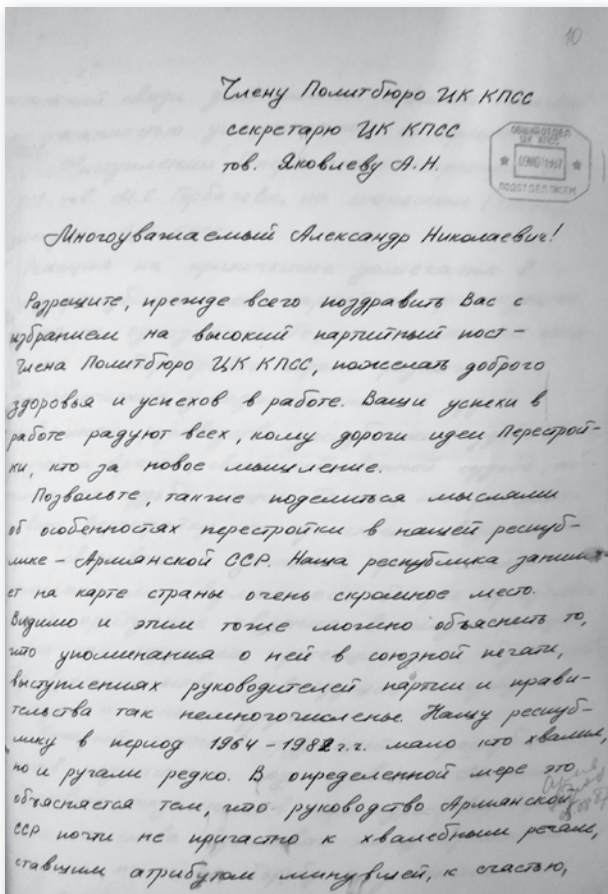 10
Члену Политбюро ЦК КПСС
секретарю ЦК КПСС
тов. Яковлеву А.Н.
ОБЩИЙ ОТДЕЛ
ЦК КПСС
1987
ПОДОТДЕЛ ПИСЕМ
Многоуважаемый Александр Николаевич!
Разрешите, прежде всего поздравить Вас с
избранием на высокий партийный пост –
члена Политбюро ЦК КПСС, пожелать доброго
здоровья и успехов в работе. Ваши успехи в
работе радуют всех, кому дороги идеи Перестрой-
ки, кто за новое мышление.
Позвольте, также поделиться мыслями
об особенностях перестройки в нашей респуб-
лике – Армянской ССР. Наша республика занима-
ет на карте страны очень скромное место.
Видимо и этим тоже можно объяснить то,
что упоминания о ней в союзной печати,
выступлениях руководителей партии и прави-
тельства так немногочислены. Нашу респуб-
лику в период 1964-1982 г.г. мало кто хвалил,
но и ругали редко. В определенной мере это
объясняется тем, что руководство Армянской
ССР почти не причастно к хвалебным речам,
ставшим атрибутом минувшей, к счастью,